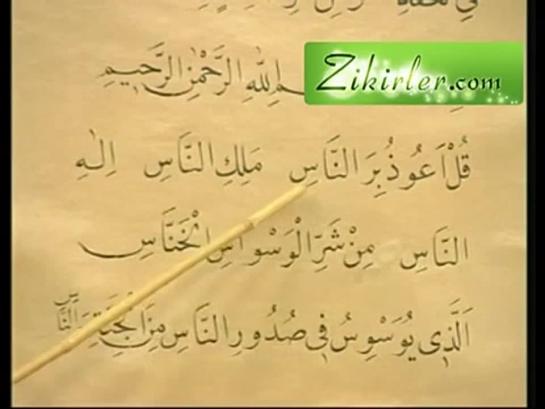 Zikirler.com
الله الرَّحْمٰنِ الرَّحِيمِ
قُلْ اَعُوذُ بِرَبِّ النَّاسِ مَلِكِ النَّاسِ اِلٰهِ
النَّاسِ مِنْ شَرِّ الْوَسْوَاسِ الْخَنَّاسِ
اَلَّذِي يُوَسْوِسُ فِي صُدُورِ النَّاسِ مِنَ الْجِنَّةِ وَالنَّاسِ